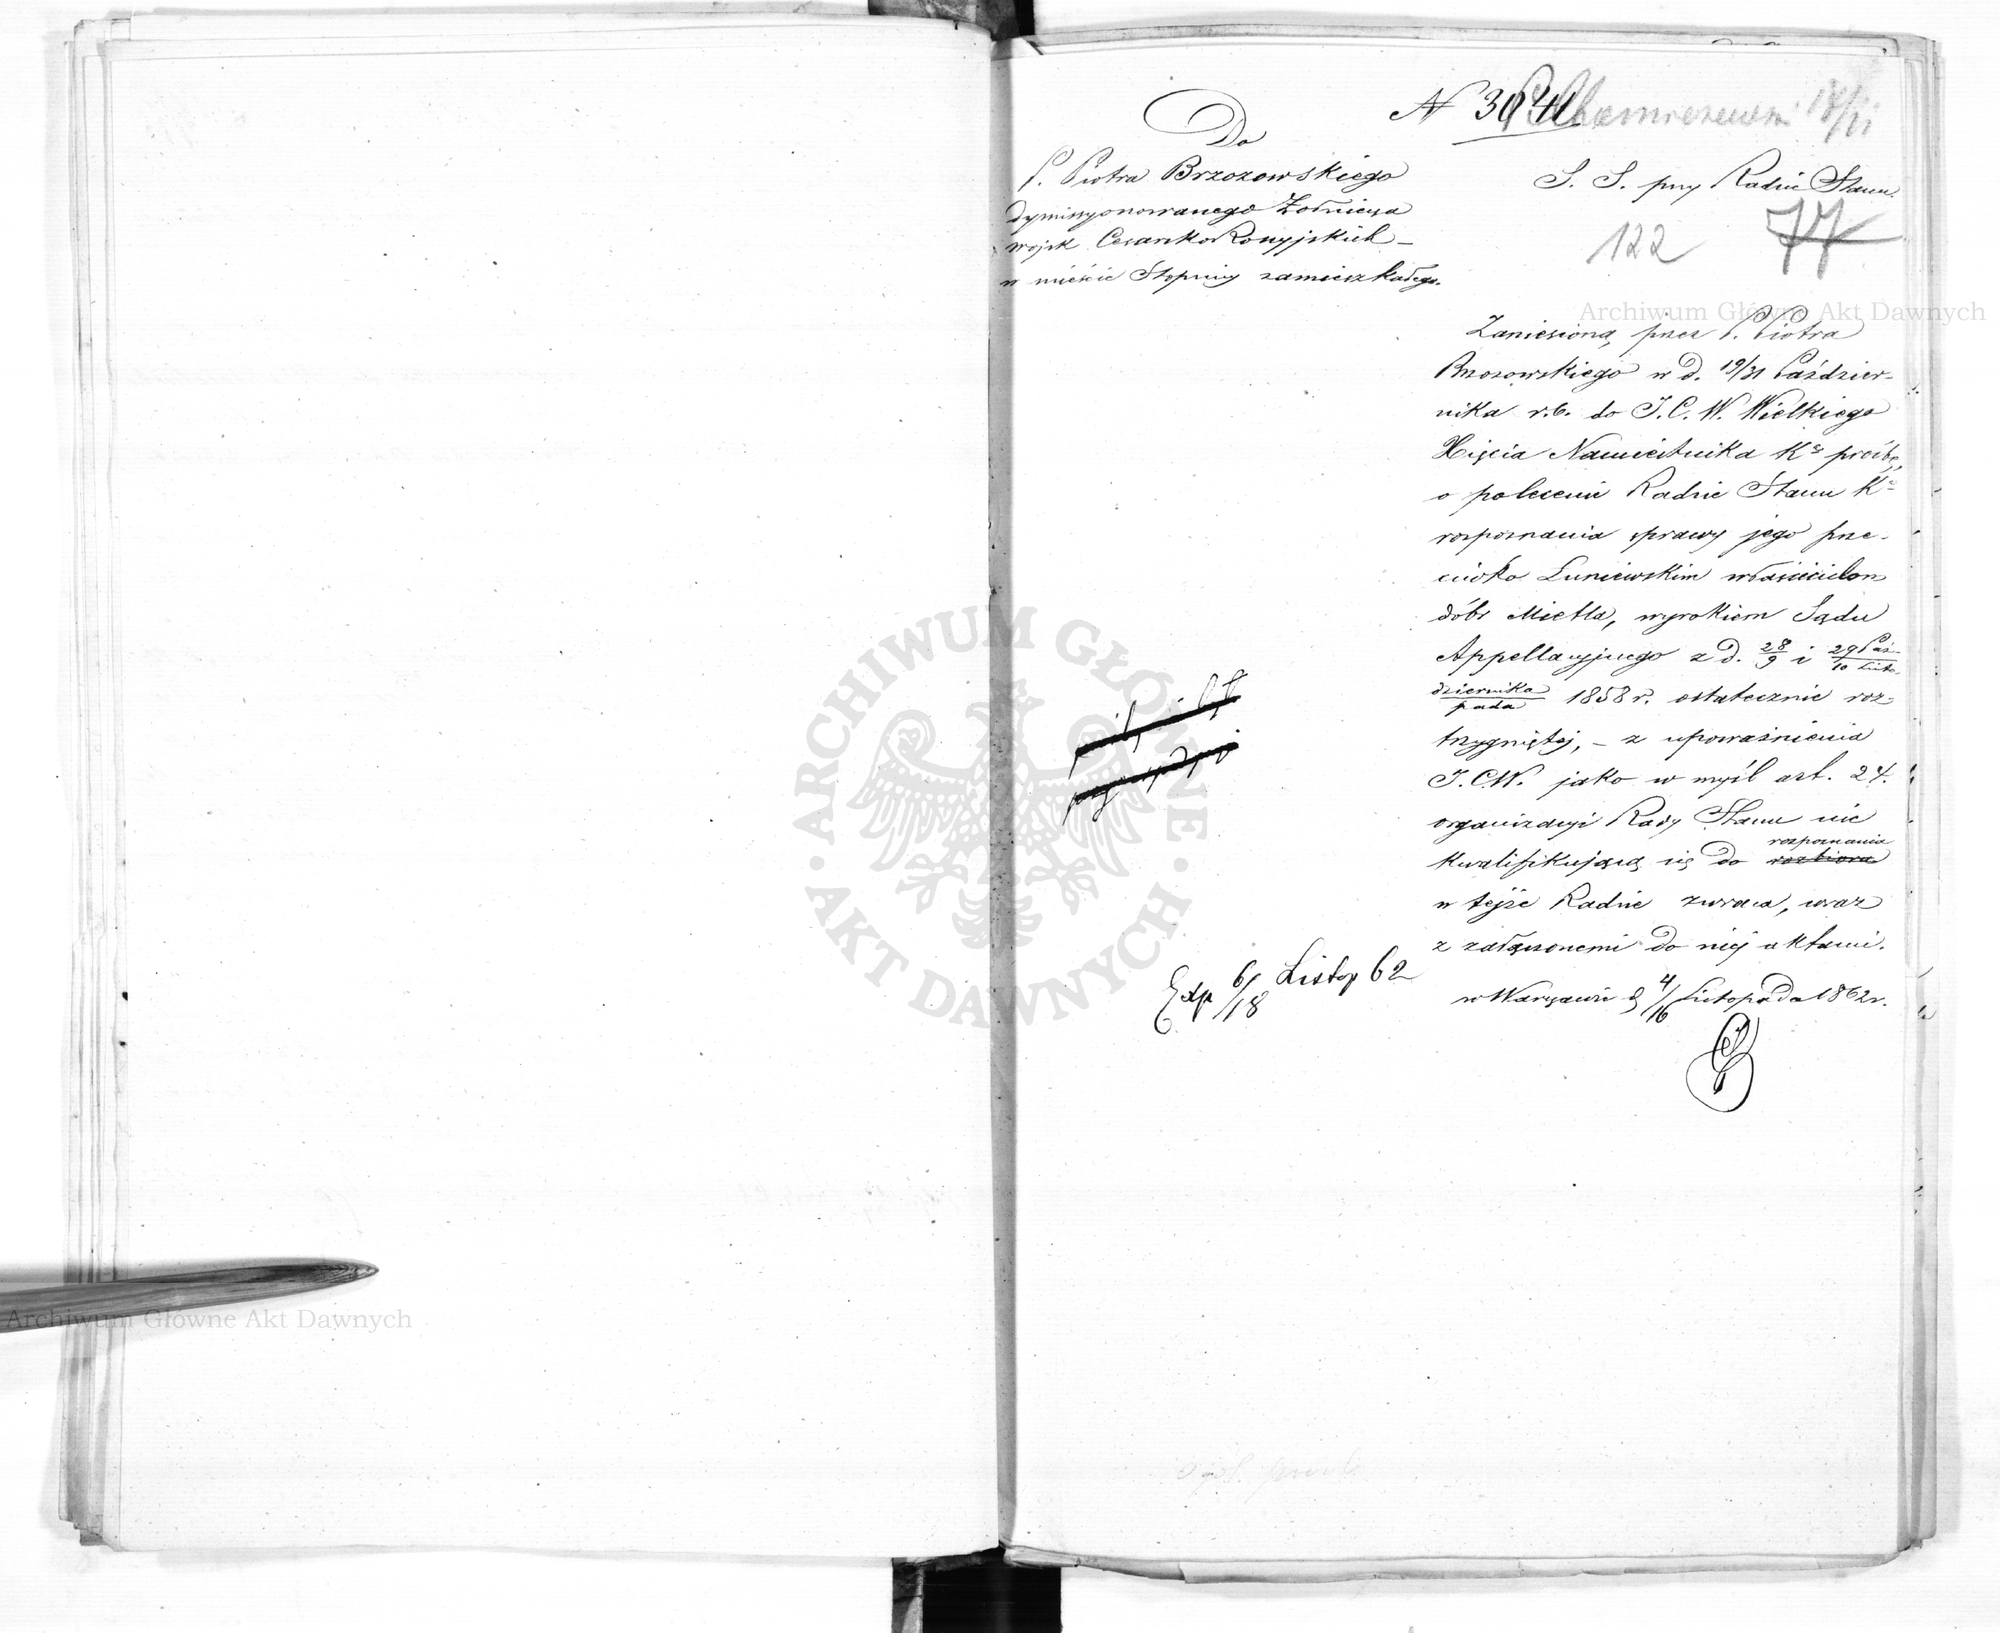 N 3041
18/11
Do
P. Piotra Brzozowskiego
dymissyonowanego Żołnierza
wojsk Cesarsko Rossyjskich –
w mieście Stopnicy zamieszkałego.
S. S. przy Radzie Stanu
122 77
Zaniesioną przez P. Piotra
Brzozowskiego w d. 19/31 Paździer-
nika r.b. do J.C.W. Wielkiego
Xięcia Namiestnika Kr prośbę,
o polecenie Radzie Stanu Kr
rozpoznania sprawy jego prze-
ciwko Łuniewskim właścicielom
dóbr Mietla, wyrokiem Sądu
Appellacyjnego z d. 28/9 i 29 Paź-/10 Listo-
dziernika/pada 1858 r. ostatecznie roz-
trzygniętej, – z upoważnienia
J.C.W. jako w myśl art. 24.
organizacyi Rady Stanu nie
rozpoznania
kwalifikującą się do rozbioru
w tejże Radzie zwraca, wraz
z załączonemi do niej aktami.
w Warszawie d 4/16 Listopada 1862 r.
Exp 6/18 Listop 62
Archiwum Główne Akt Dawnych
Archiwum Główne Akt Dawnych
· ARCHIWUM GŁÓWNE · AKT DAWNYCH